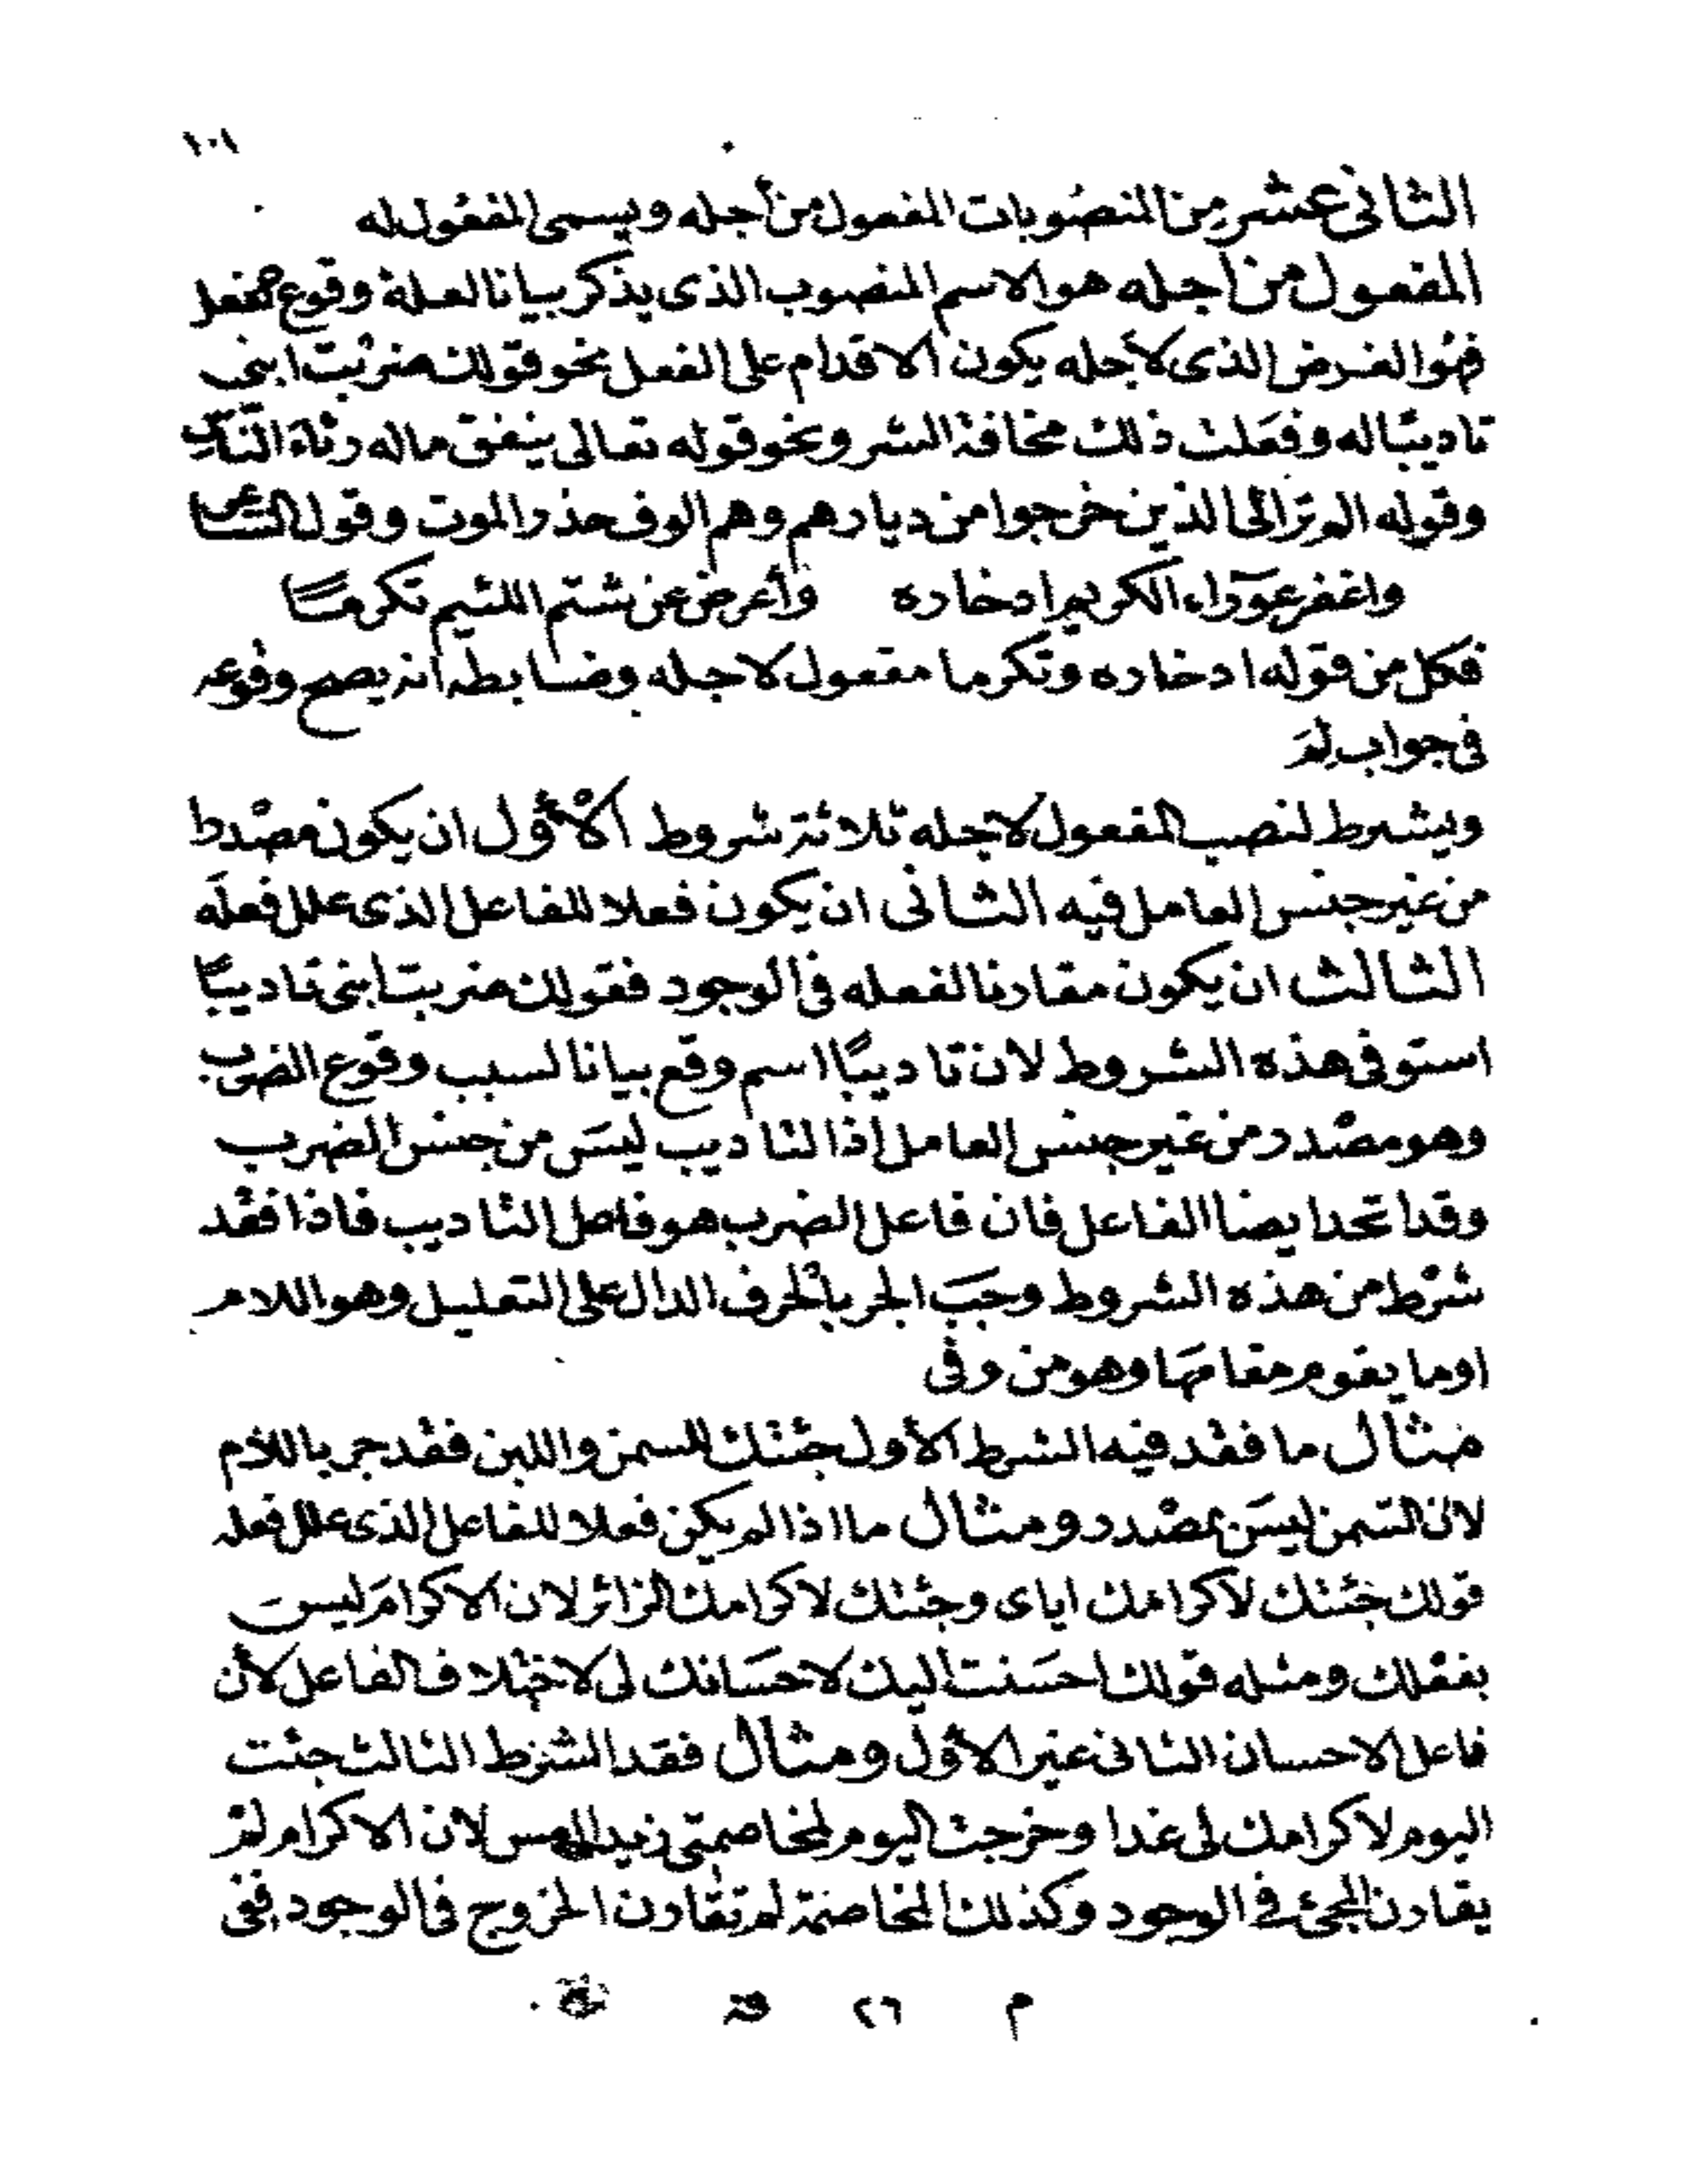 ١٠١
الثانى عشر من المنصوبات المفعول من أجله ويسمى المفعول له
المفعول من أجله هو الاسم المنصوب الذى يذكر بيانا لعلة وقوع الفعل
فهو الغرض الذى لأجله يكون الاقدام على الفعل نحو قولك ضربت ابنى
تاديبًا له وفعلت ذلك مخافة الشر ونحو قوله تعالى ينفق ماله رئاء الناس
وقوله الم تر الى الذين خرجوا من ديارهم وهم الوف حذر الموت وقول الشاعر
واغفر عورآء الكريم ادخاره وأعرض عن شتم اللئيم تكرمًا
فكل من قوله ادخاره وتكرما مفعول لاجله وضابطه انه يصح وقوعه
فى جواب لِمَ
ويشترط لنصب المفعول لاجله ثلاثة شروط الأول ان يكون مصدرا
من غير جنس العامل فيه الثانى ان يكون فعلا للفاعل الذى علل فعله
الثالث ان يكون مقارنا لفعله فى الوجود فقولك ضربت ابنى تاديبًا
استوفى هذه الشروط لان تاديبًا اسم وقع بيانا لسبب وقوع الضرب
وهو مصدر من غير جنس العامل اذ التاديب ليس من جنس الضرب
وقد اتحد ايضا الفاعل فان فاعل الضرب هو فاعل التاديب فاذا فقد
شرط من هذه الشروط وجب الجر بالحرف الدال على التعليل وهو اللام
او ما يقوم مقامها وهو من وفى
مثال ما فقد فيه الشرط الأول جئتك للسمن واللبن فقد جر باللام
لان السمن ليس بمصدر ومثال ما اذا لم يكن فعلا للفاعل الذى علل فعله
قولك جئتك لاكرامك اياى وجئتك لاكرامك الزائر لان الاكرام ليس
بفعلك ومثله قولك احسنت اليك لاحسانك لى لاختلاف الفاعل لأن
فاعل الاحسان الثانى غير الأول ومثال فقد الشرط الثالث جئت
اليوم لاكرامك لى غدا وخرجت اليوم لمخاصمتى زيدا امس لان الاكرام لم
يقارن المجئ فى الوجود وكذلك المخاصمة لم تقارن الخروج فى الوجود ففى
م ٢٦ قة